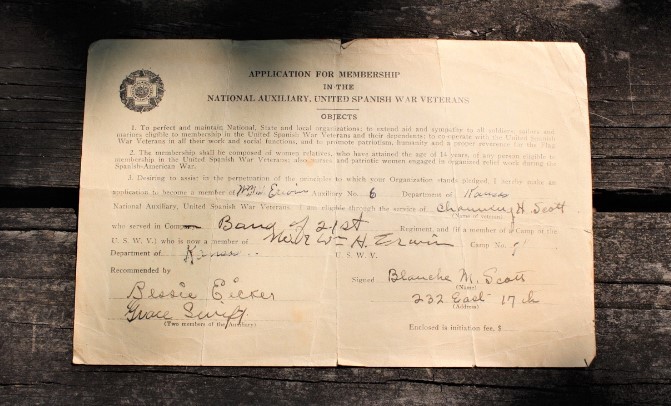 APPLICATION FOR MEMBERSHIP
IN THE
NATIONAL AUXILIARY, UNITED SPANISH WAR VETERANS
OBJECTS
1. To perfect and maintain National, State and local organizations; to extend aid and sympathy to all soldiers, sailors and
marines eligible to membership in the United Spanish War Veterans and their dependents; to co-operate with the United Spanish
War Veterans in all their work and social functions, and to promote patriotism, humanity and a proper reverence for the Flag
2. The membership shall be composed of women relatives, who have attained the age of 16 years, of any person eligible to
membership in the United Spanish War Veterans; also and patriotic women engaged in organized relief work during the
Spanish-American War.
3. Desiring to assist in the perpetuation of the principles to which your Organization stands pledged, I hereby make an
application to become a member of Erwin Auxiliary No. 6 Department of Kansas
National Auxiliary, United Spanish War Veterans. I am eligible through the service of Channing H. Scott
(Name of veteran)
who served in Company Band of 21st Regiment, and (if a member of a Camp in the
U. S. W. V.) who is now a member of Wm H. Erwin Camp No.
Department of Kansas U. S. W. V.
Recommended by
Signed Blanche M. Scott
(Name)
Bessie Eicker
232 East 17th
(Address)
Grace Swift
(Two members of the Auxiliary)
Enclosed is initiation fee, $